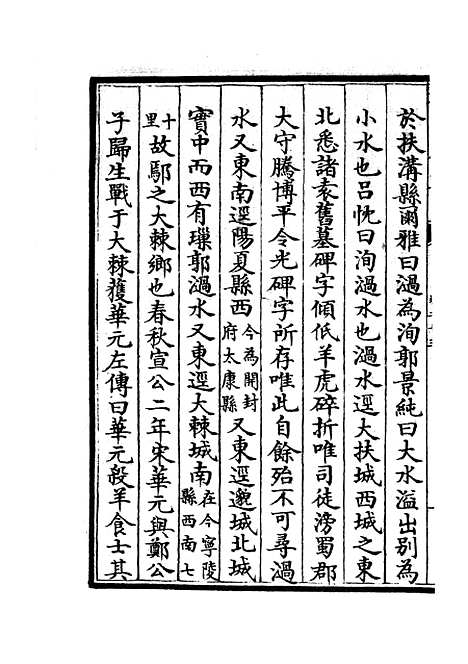 於扶溝縣爾雅曰濄為洵郭景純曰大水溢出別為
小水也呂忱曰洵濄水也濄水逕大扶城西城之東
北悉諸袁舊墓碑字傾低羊虎碎折唯司徒滂蜀郡
大守騰博平令光碑字所存唯此自餘殆不可尋濄
水又東南逕陽夏縣西今為開封府太康縣又東逕邈城北城
實中而西有璅郭濄水又東逕大棘城南在今寧陵縣西南七
十里故鄢之大棘鄉也春秋宣公二年宋華元與鄭公
子歸生戰于大棘獲華元左傳曰華元殺羊食士其